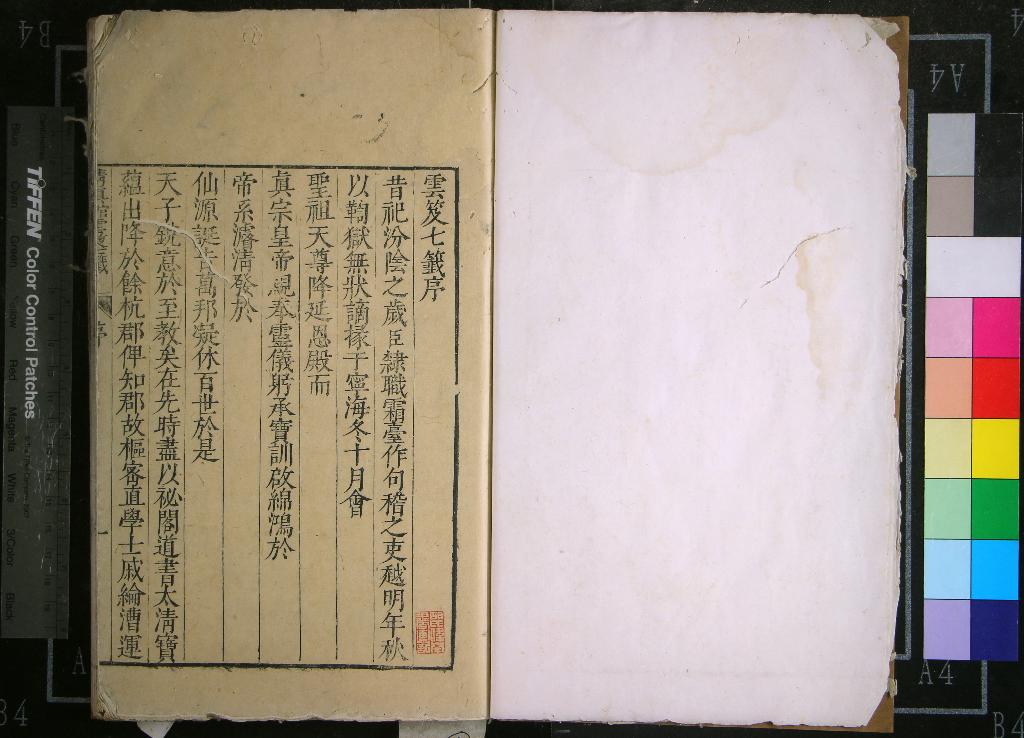 雲笈七籤序
昔祀汾陰之歲臣隸職霜臺作句稽之吏越明年秋
以鞫獄無狀謫掾于寧海冬十月會
聖祖天尊降延恩殿而
眞宗皇帝親奉靈儀躬承寶訓啟綿鴻於
帝系濬清發於
仙源誕告萬邦凝休百世於是
天子銳意於至教矣在先時盡以祕閣道書太清寶
蘊出降於餘杭郡俾知郡故樞密直學士戚綸漕運
序
一
TIFFEN Color Control Patches
Blue
Cyan
Green
Yellow
Red
Magenta
White
3/Color
Black
B4
A4
A4
A
B4
B4